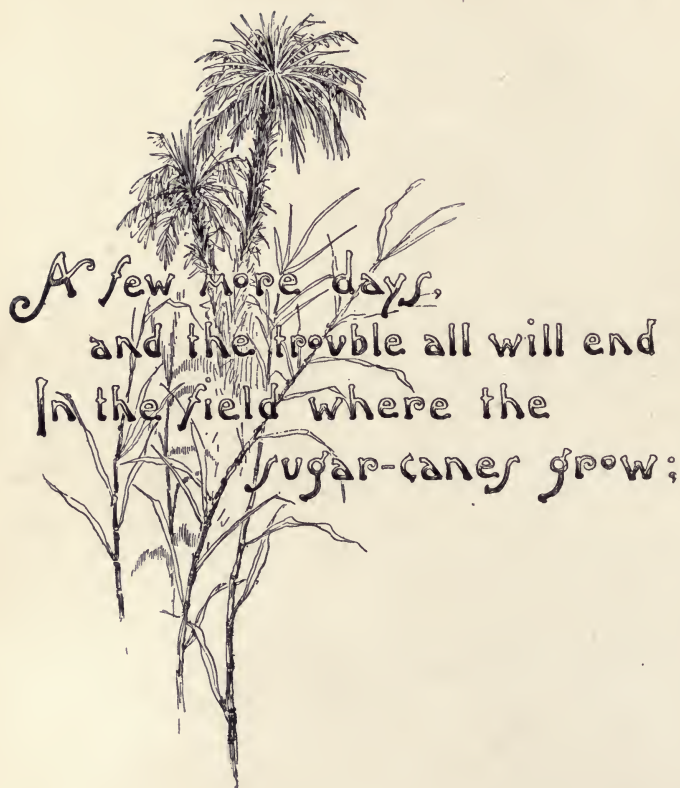 A few more days,
and the trouble all will end
In the field where the
sugar-canes grow;